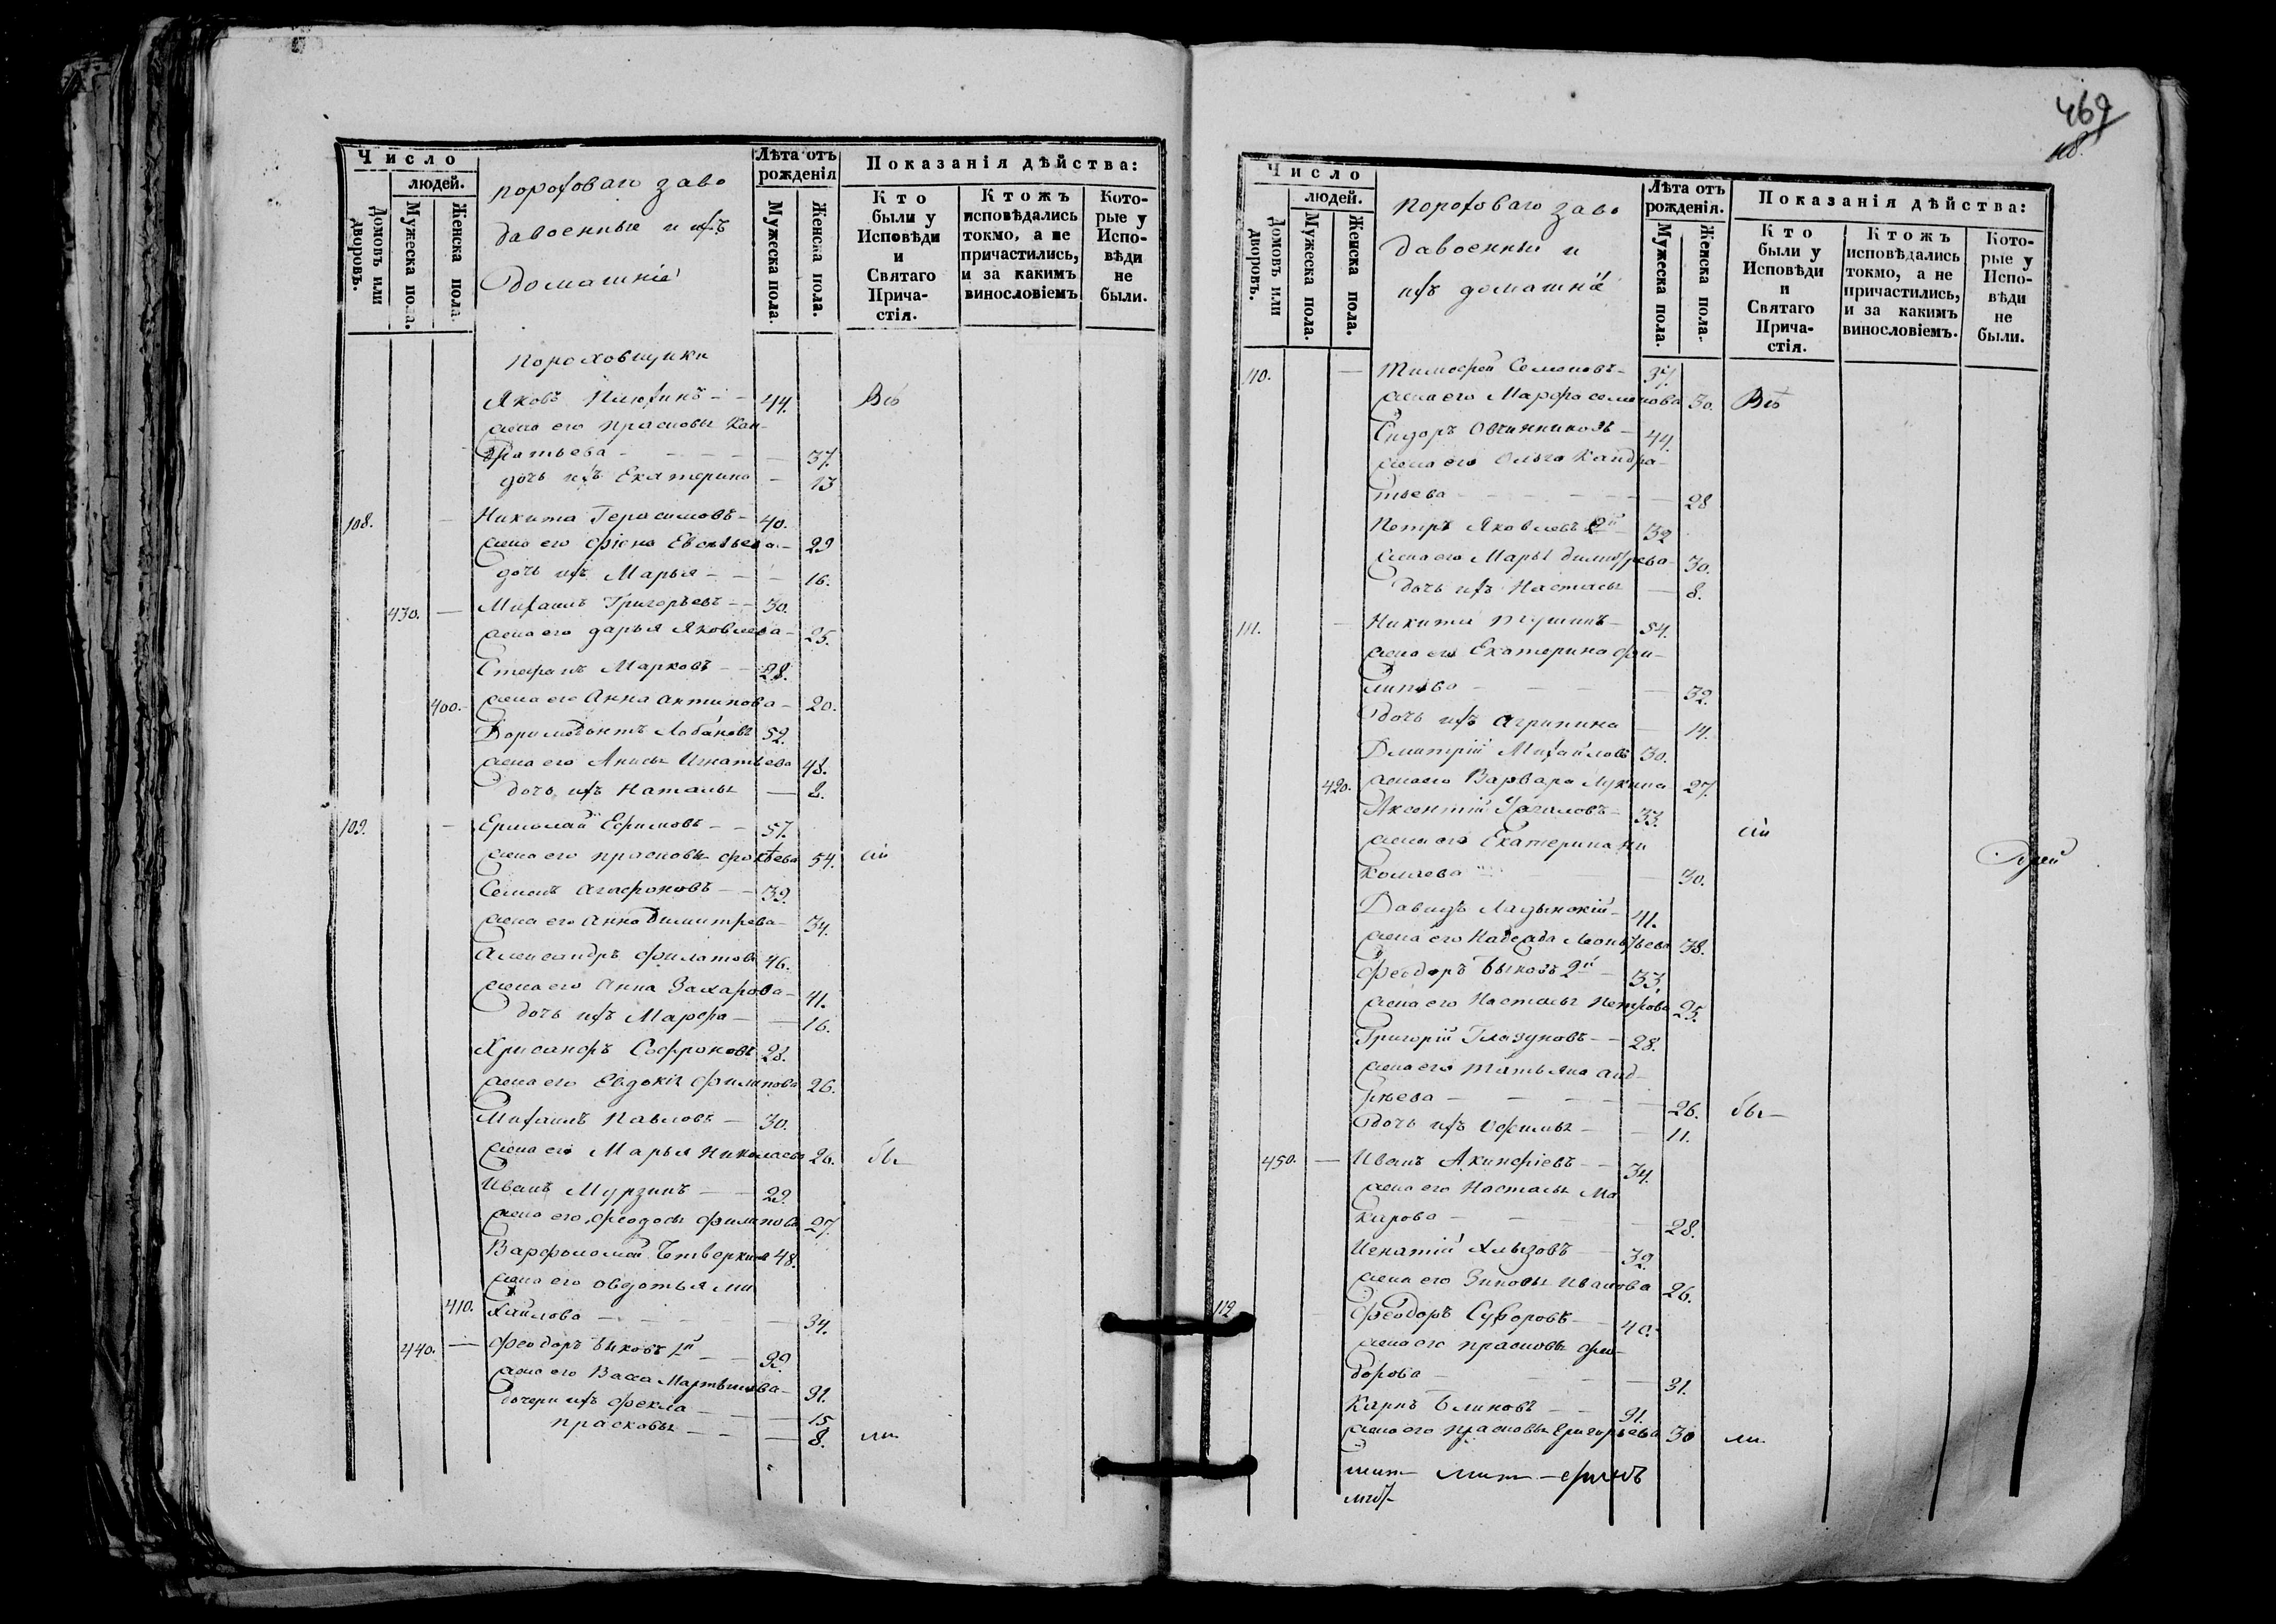 Число
людей.
Домовъ или дворовъ.
Мужеска пола.
Женска пола.
пороховаго заво
да военные и ихъ
домашніе
Лѣта отъ рожденія
Мужеска пола.
Женска пола.
Показанія дѣйства:
Кто были у Исповѣди и Святаго Прича-стія.
Ктожъ исповѣдались токмо, а не причастились, и за какимъ винословіемъ
Кото-рые у Испо-вѣди не были.
Пороховщики
Яковъ 44. Всѣ
жена его Прасковья Кон-
дратьева - 37.
дочь ихъ Екатерина - 13
108. - Никита Герасимовъ - 40.
жена его - 29
дочь ихъ Марья - 16.
430. - Михаилъ Григорьевъ - 30.
жена его Дарья Яковлева - 25.
Стефанъ Марковъ - 28.
400. - жена его Анна Антипова - 20.
Доримедонтъ Лобановъ 52.
жена его Анисья Игнатьева 48.
дочь ихъ Наталья - 8.
109. - Ермолай Ефимовъ - 57.
жена его Прасковья Фокѣева 54. сіи
Семенъ Агафоновъ - 39.
жена его Анна Димитрева - 34.
Александръ Филатовъ 46.
жена его Анна Захарова - 41.
дочь ихъ Марфа - 16.
Хрисанфъ Софроновъ 28.
жена его Евдокія Филипова 26.
Михаилъ Павловъ - 30.
жена его Марья Николаева 26. бы-
Иванъ Мурзинъ - 29.
жена его Феодосья Филипова 27.
Варфоломей Четверкинъ 48.
жена его Овдотья Ми
410. хайлова - 34.
440. - Феодоръ Быковъ 1й - 32.
жена его Васса Мартынова - 31.
дочери ихъ Фекла - 15
Прасковья - 8. ли
469
Число
людей.
Домовъ или дворовъ.
Мужеска пола.
Женска пола.
пороховаго заво
да военные и
ихъ домашніе
Лѣта отъ рожденія.
Мужеска пола.
Женска пола.
Показанія дѣйства:
Кто были у Исповѣди и Святаго Прича-стія.
Ктожъ исповѣдались токмо, а не причастились, и за какимъ винословіемъ.
Кото-рые у Испо-вѣди не были.
110. - Тимофей Семеновъ - 37.
жена его Марфа Семенова 30. Всѣ
Сидоръ Овчинниковъ - 44.
жена его Ольга Кондра-
тьева - 28
Петръ Яковлевъ 2й - 32
жена его Марья Димитрева - 30.
дочь ихъ Настасья - 8.
111. - Никита - 54.
жена его Екатерина Фи-
липова - 32.
дочь ихъ Агрипина - 14.
Дмитрій Михайловъ 30.
420. жена его Варвара Лукина 27.
Аксентій - 33.
жена его Екатерина Ни сіи
колаева - 30.
Давидъ Ладынскій - 41.
жена его Надежда Леонтьева 38.
Феодоръ Быковъ 2й - 33.
жена его Настасья Петрова 25.
Григорій Глазуновъ - 28.
жена его Татьяна Анд-
рѣева - 26. бы-
дочь ихъ Офимья - 11.
450. - Иванъ Акинфіевъ - 34.
жена его Настасья Ма
карова - 28.
Игнатій Хлызовъ - 32.
жена его Зиновья Иванова 26.
112 Феодоръ Суворовъ - 40.
жена его Прасковья Фео-
дорова - 31.
Карпъ Блиновъ - 31.
жена его Прасковья Григорьева 30 ли